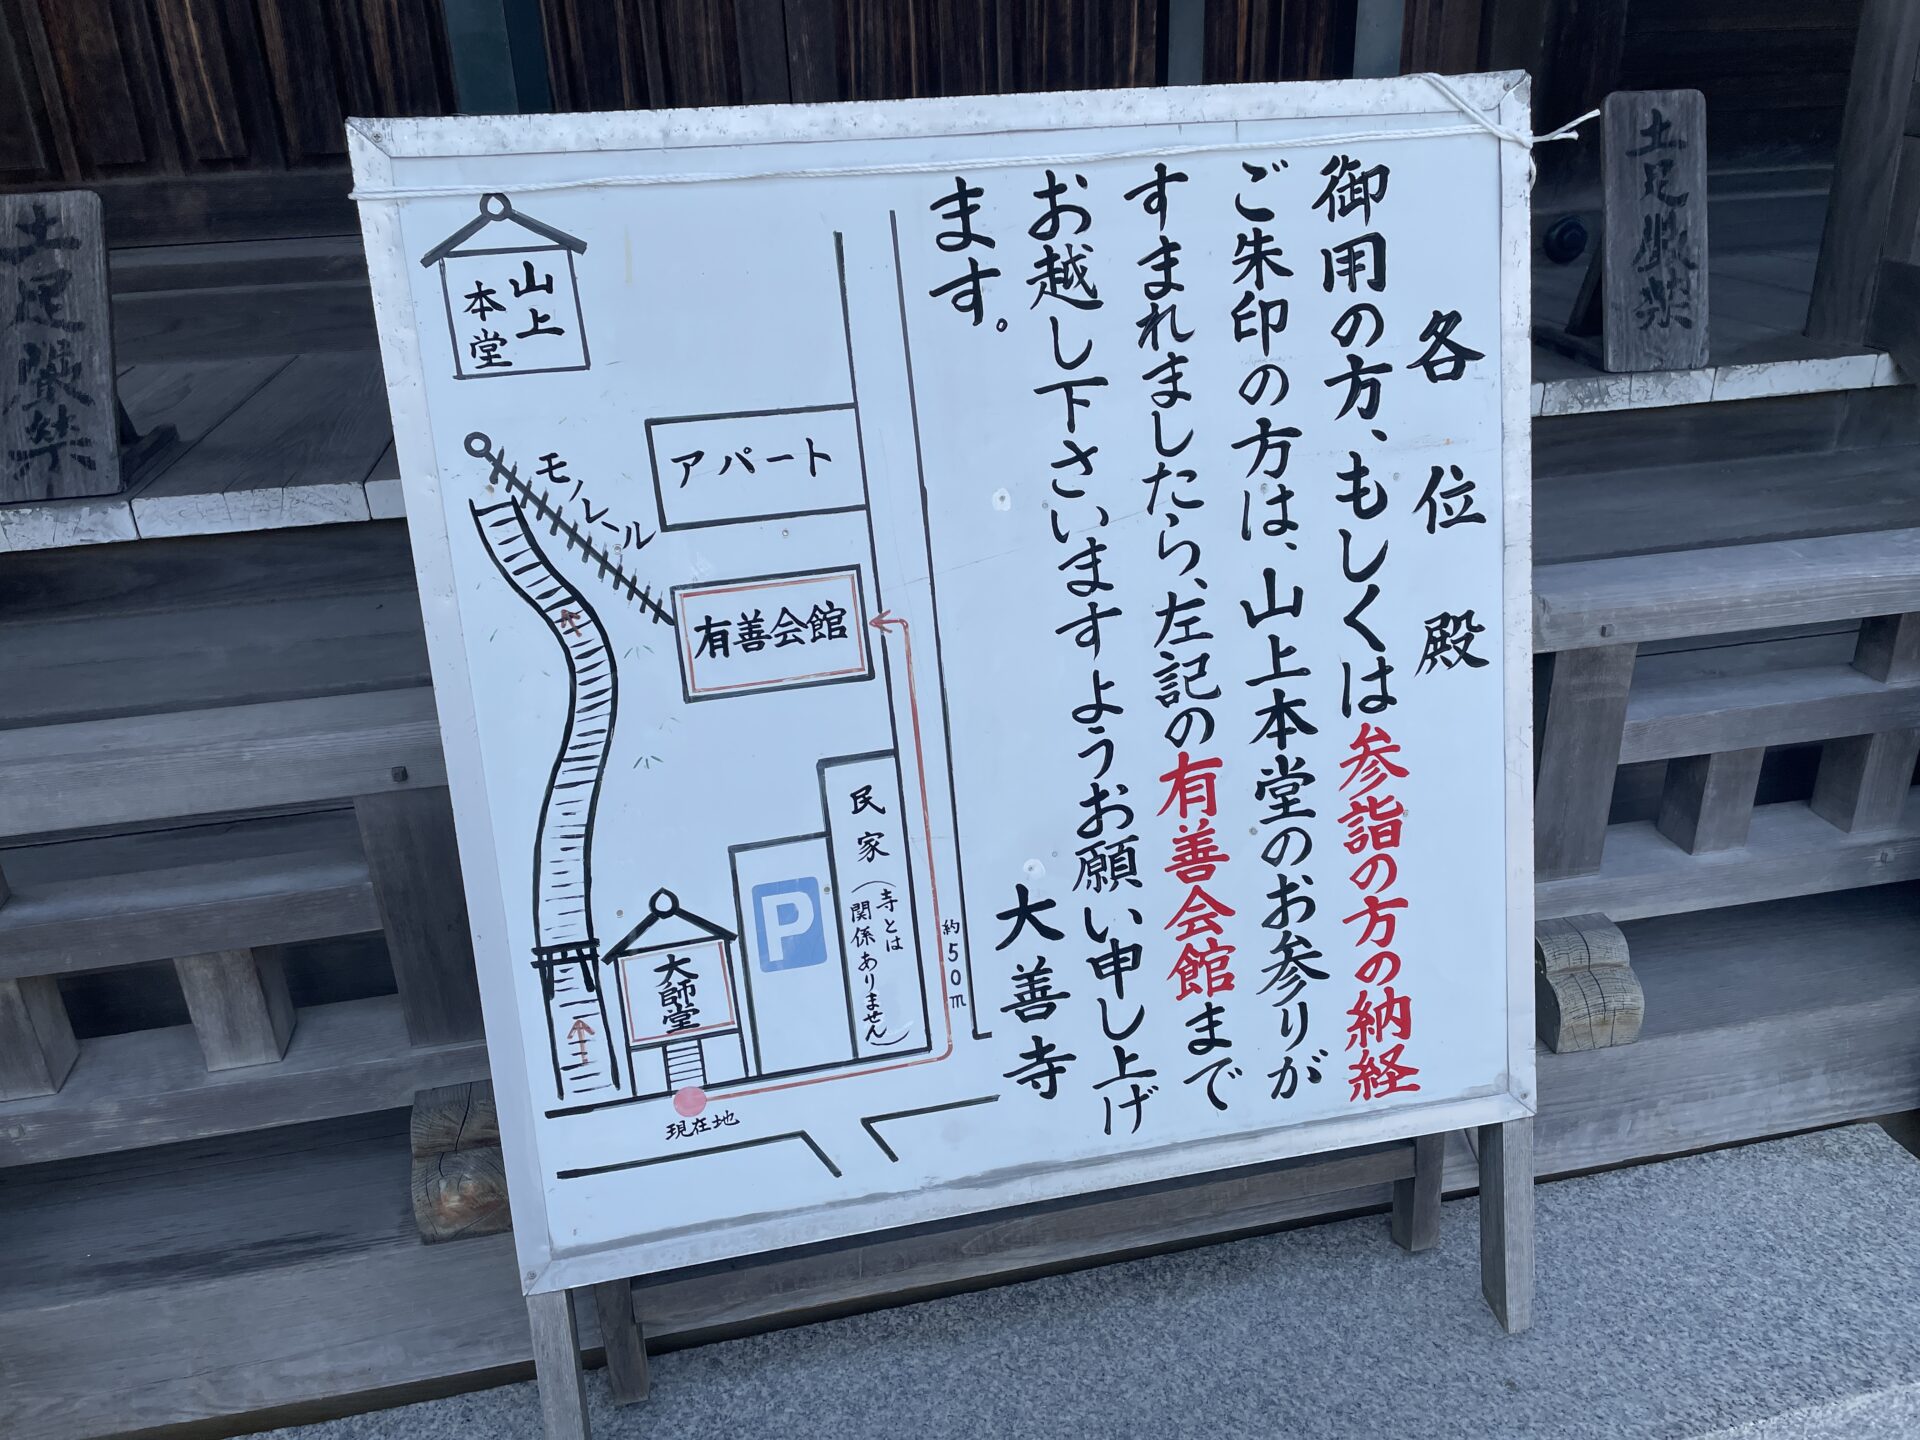 各位殿
御用の方、もしくは参詣の方の納経
ご朱印の方は、山上本堂のお参りが
すまれましたら、左記の有善会館まで
お越し下さいますようお願い申し上げ
ます。
大善寺
山上
本堂
モノレール
アパート
有善会館
民家
(寺とは
関係ありません)
P
大師堂
約50m
現在地
土足厳禁
土足厳禁